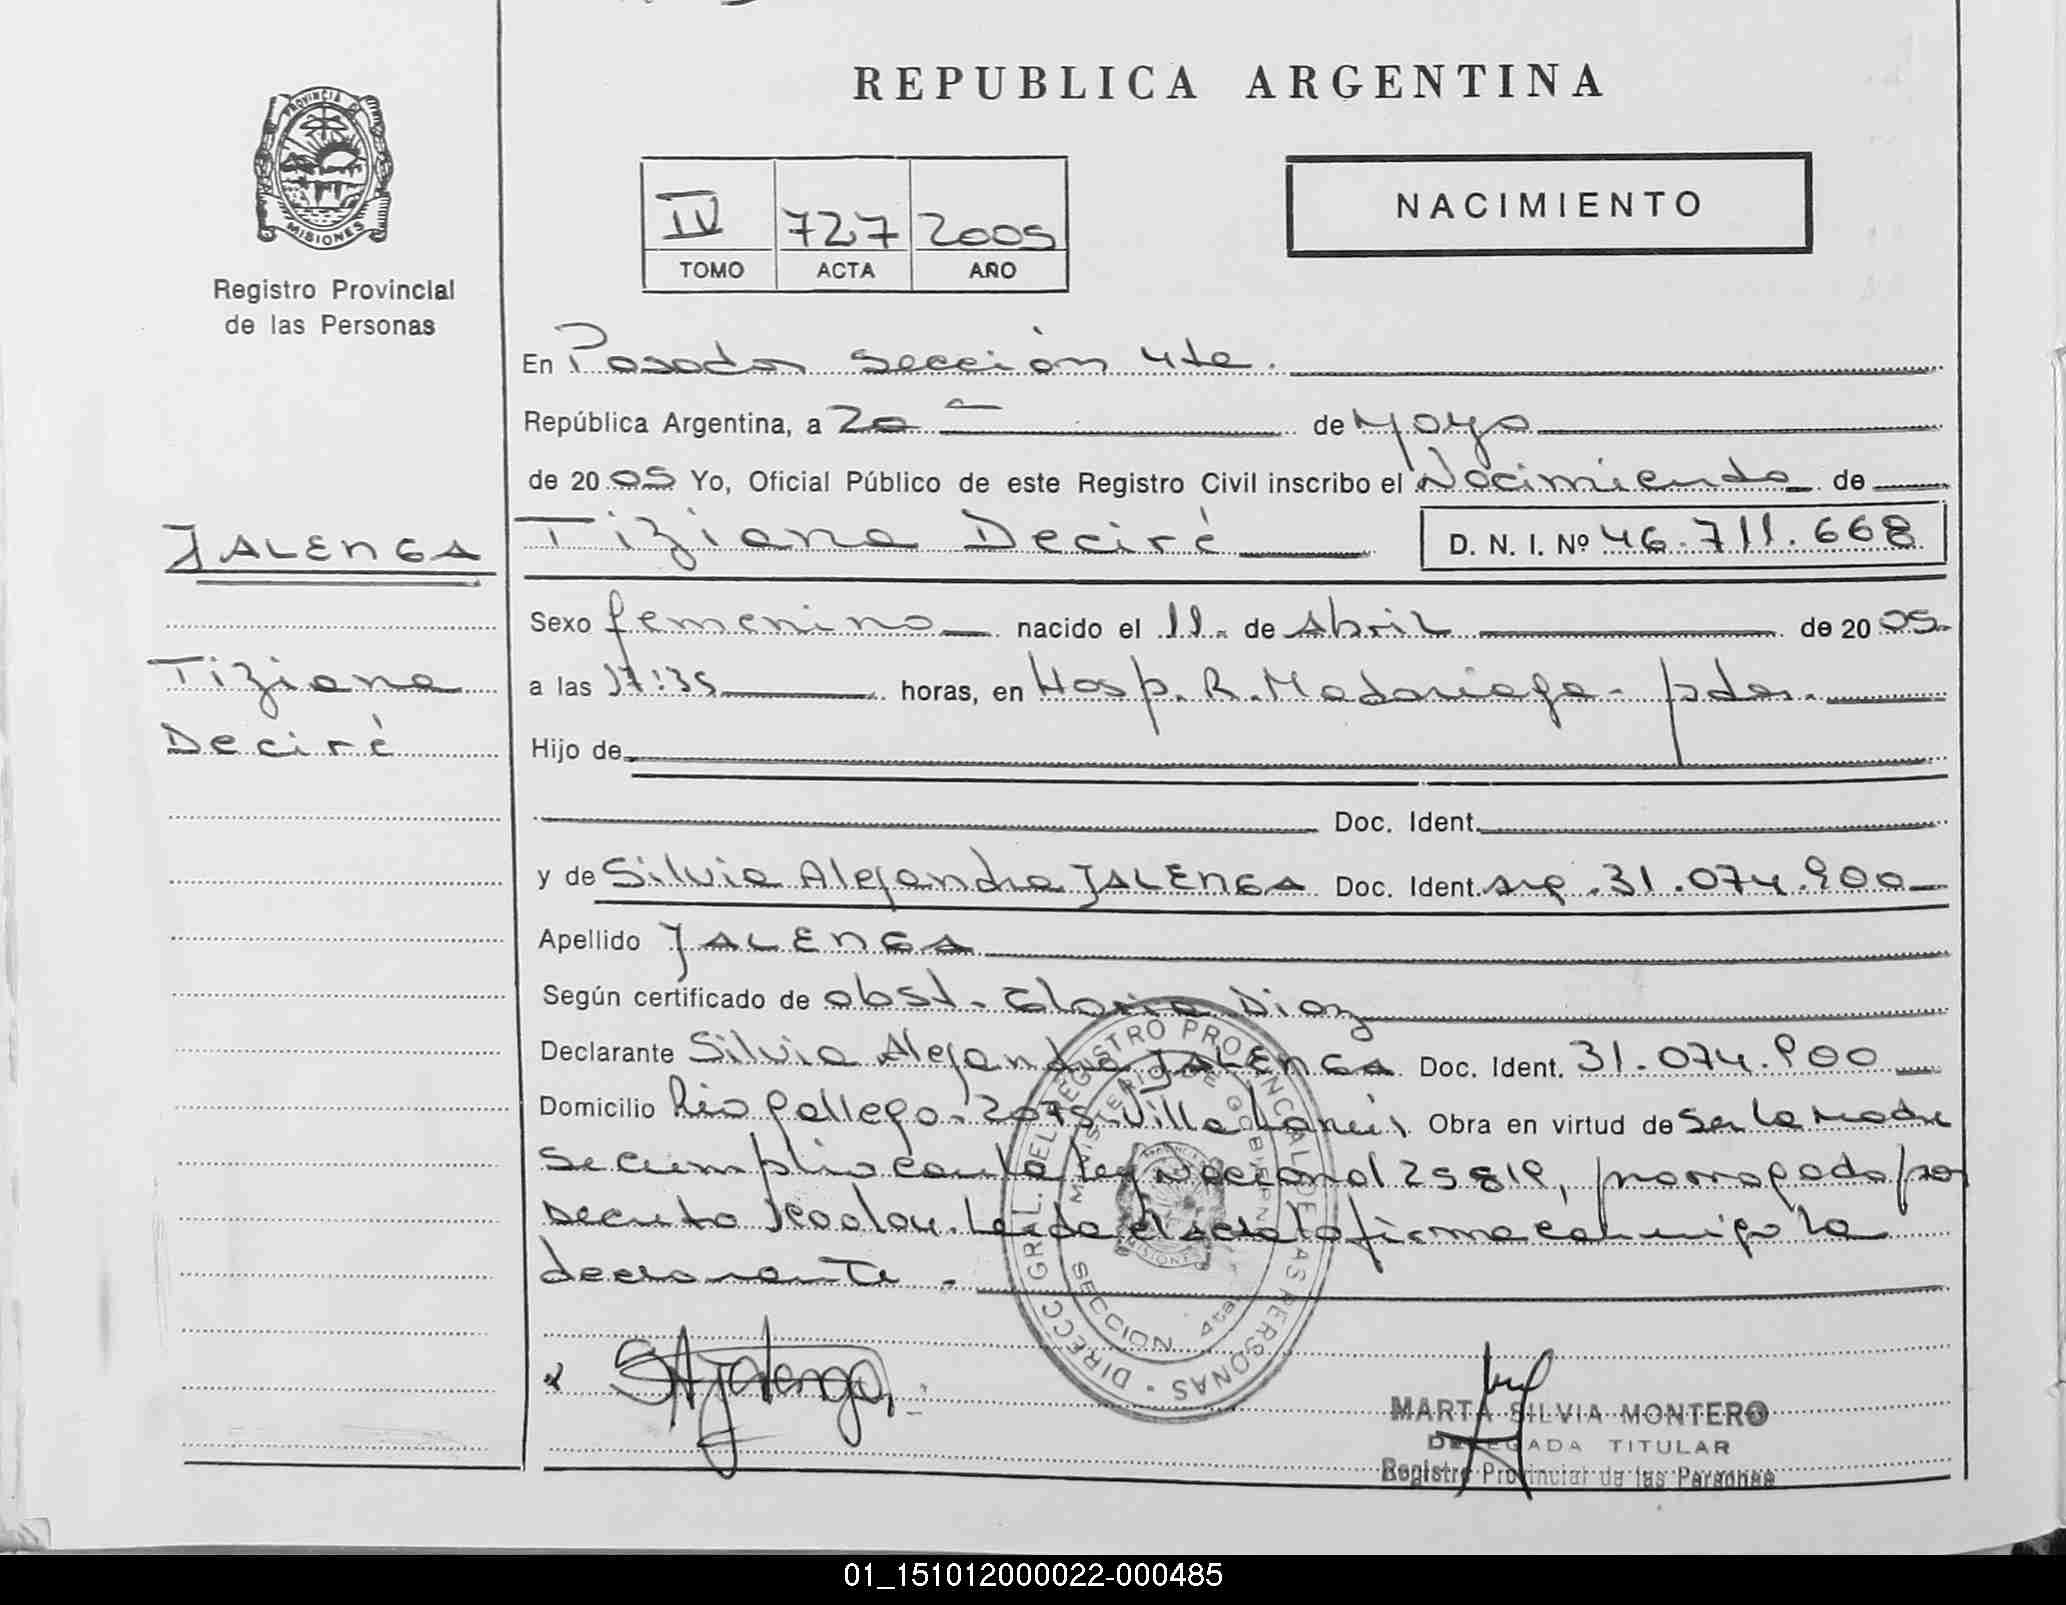 REPUBLICA ARGENTINA
PROVINCIA DE
MISIONES
Registro Provincial
de las Personas
IV 727 2005
TOMO ACTA AÑO
NACIMIENTO
En Posadas sección 4ta.
República Argentina, a 20 de Mayo
de 2005 Yo, Oficial Público de este Registro Civil inscribo el Nacimiento de
JALENGA
Tiziana Deciré D. N. I. Nº 46.711.668
Sexo femenino nacido el 11. de Abril de 2005.
Tiziana
Deciré
a las 17:35 horas, en Hosp. R. Madariaga - pdas.
Hijo de
Doc. Ident.
y de Silvia Alejandra JALENGA Doc. Ident. arg. 31.074.900
Apellido JALENGA
Según certificado de obst. Gloria Diaz
Declarante Silvia Alejandra JALENGA Doc. Ident. 31.074.900
Domicilio Rio Gallego. 2075. Villa Lanús Obra en virtud de Ser la Madre
Se cumplio con la ley Nacional 25819, prorrogado por
Decreto Leida el acta la firma conmigo la
declarante.
DIRECC. GRL. DEL REGISTRO PROVINCIAL DE LAS PERSONAS
MINISTERIO DE GOBIERNO
MISIONES
SECCION 4ta.
SAJalenga
MARTA SILVIA MONTERO
DELEGADA TITULAR
Registro Provincial de las Personas
01_151012000022-000485